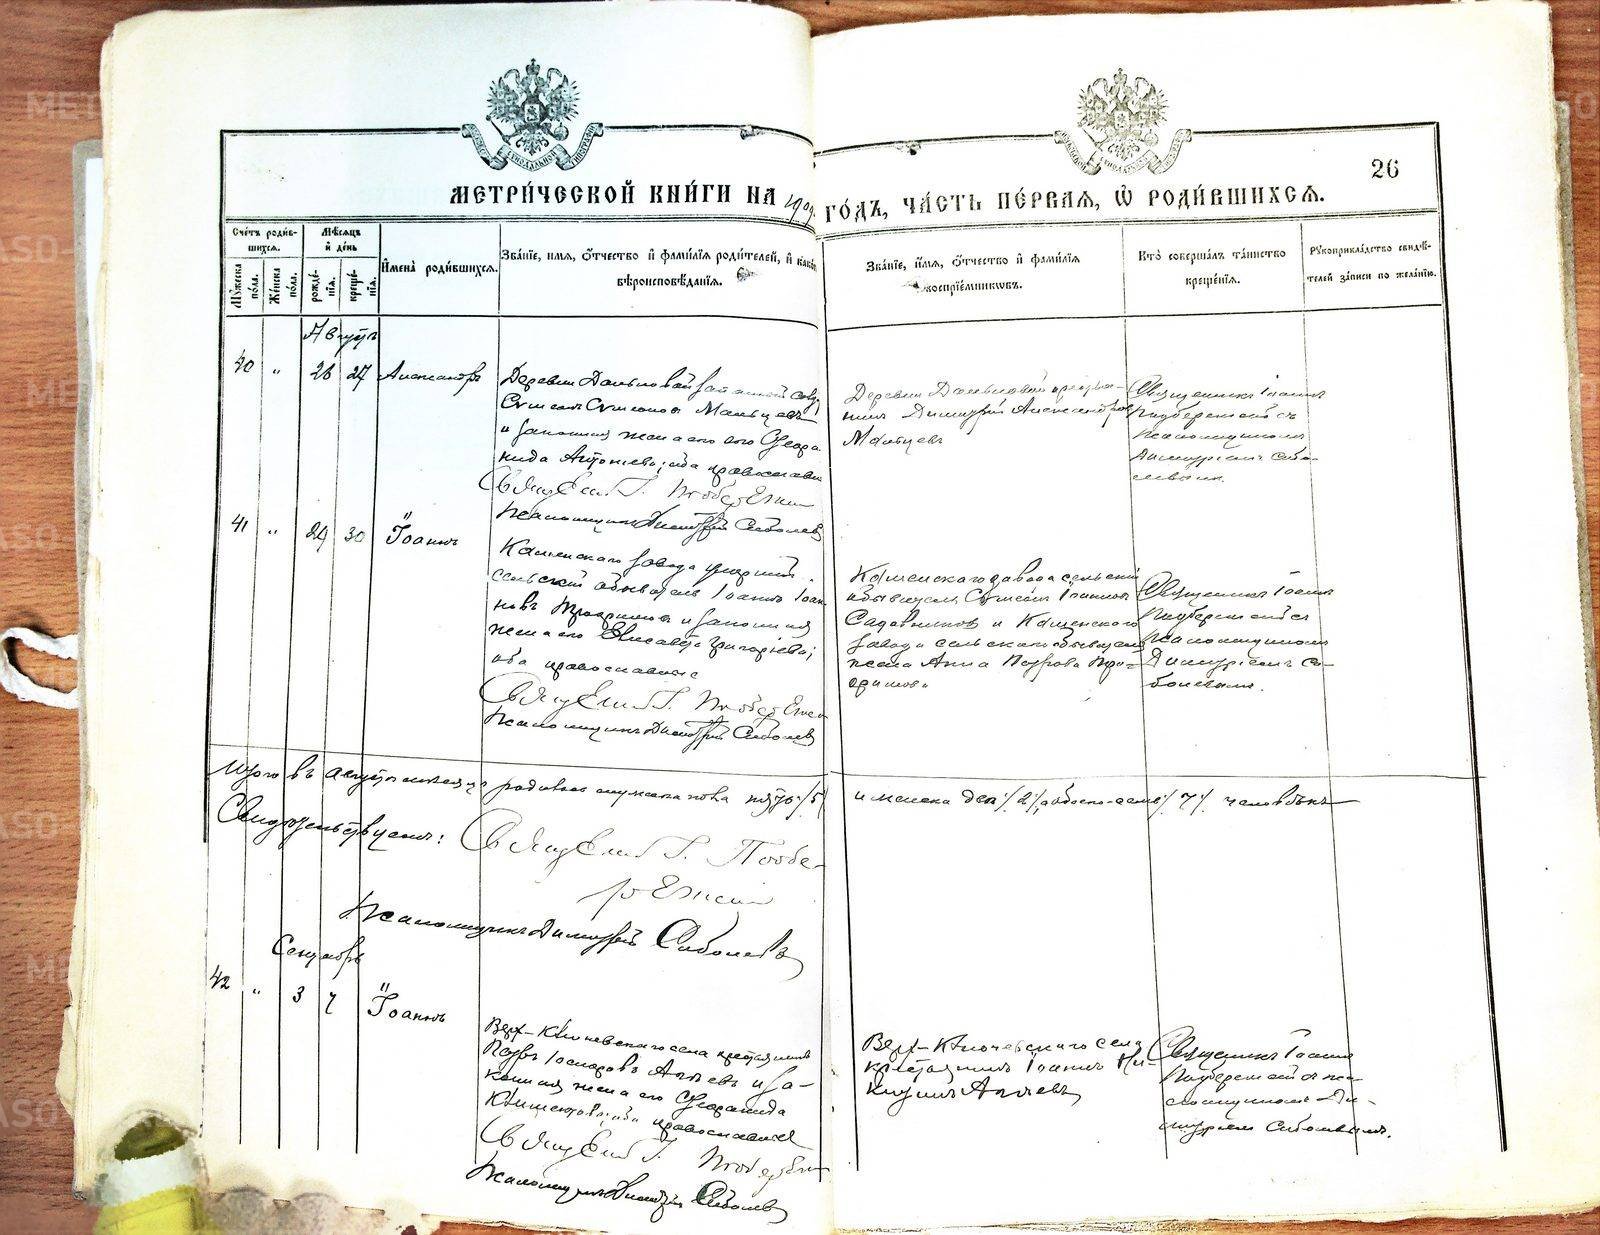 МЕТРИ́ЧЕСКОЙ КНИ́ГИ НА 1909 ГО́ДЪ, ЧА́СТЬ ПЕ́РВАЯ, Ѡ РОДИ́ВШИХСЯ.
26
Сче́тъ роди́в-
шихся.
Мѣ́сяцъ
и҆ де́нь
Мꙋ́жеска
по́ла.
Же́нска
по́ла.
рожде́-
нїѧ.
креще́-
нїѧ.
И҆мена̀ роди́вшихсѧ.
Зва́нїе, и҆́мѧ, о҆́тчество и҆ фами́лїѧ роди́телей, и҆ како́гѡ
вѣроисповѣ́данїѧ.
Зва́нїе, и҆́мѧ, о҆́тчество и҆ фами́лїѧ
воспрїе́мникѡвъ.
Кто̀ соверша́лъ та́инство
креще́нїѧ.
Рꙋкоприкла́дство свидѣ́-
телей за́писи по жела́нїю.
Августъ
40 " 26 27 Александръ
Деревни
Мальцевъ
и законная жена его
нида Антоніева; оба православные
Священникъ І. Побережскій
Псаломщикъ Димитрій Соболевъ
Деревни
нинъ Димитрій Александровъ
Мальцевъ
Священникъ Іоаннъ
Побережскій съ
псаломщикомъ
Димитріемъ Собо-
левымъ.
41 " 29 30 Іоаннъ
Каменскаго завода
сельскій обыватель Іоаннъ Іоан-
новъ и законная
жена его Елисавета Григоріева;
оба православные
Священникъ І. Побережскій
Псаломщикъ Димитрій Соболевъ
Каменскаго завода сельскій
обыватель Симеонъ Іоанновъ
Садовниковъ и Каменскаго
завода сельскаго обывателя
жена Анна Петрова
Священникъ Іоаннъ
Побережскій съ
псаломщикомъ
Димитріемъ Со-
болевымъ.
Итого въ августѣ мѣсяцѣ родилось мужска пола пять /5/ и женска два /2/, а обоего семь /7/ человѣкъ
Свидѣтельствуемъ: Священникъ І. Побе-
режскій
Псаломщикъ Димитрій Соболевъ
Сентябрь
42 " 3 7 Іоаннъ
Верх-Ключевскаго села крестьянинъ
Петръ и за-
конная жена его
православные
Священникъ І. Побережскій
Псаломщикъ Димитрій Соболевъ
Верх-Ключевскаго села
крестьянинъ Іоаннъ Ни-
Священникъ Іоаннъ
Побережскій съ пса-
ломщикомъ Ди-
митріемъ Соболевымъ.